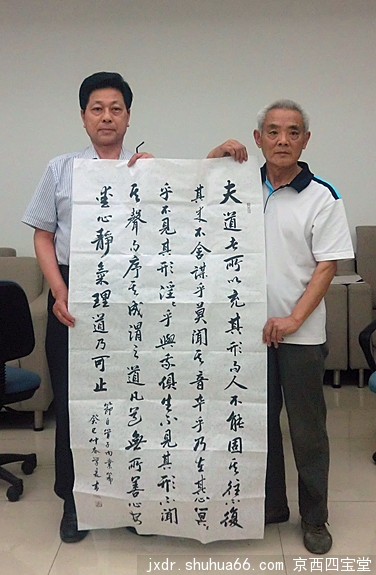 夫道者所以充其形而人不能固其往不復
其来不舍謀乎莫聞其音卒乎乃在其心冥
乎不見其形淫乎與我俱生不見其形不聞
其聲而序其成謂之道凡道無所善心安
愛心靜氣理道乃可止
節自管子内業篇
癸巳仲春 書
jxdr.shuhua66.com 京西四宝堂